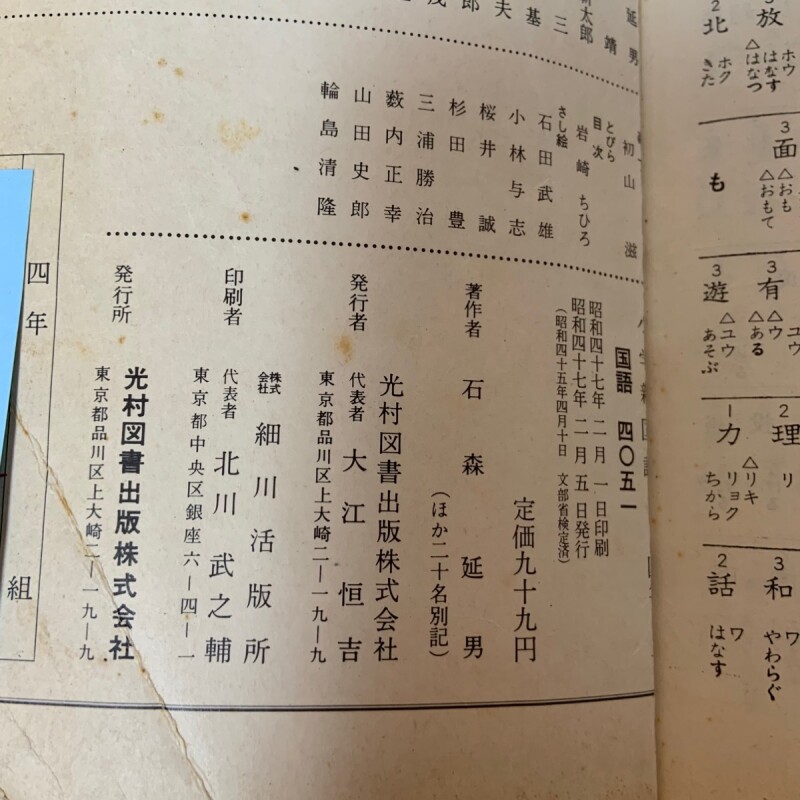 北
ホク
きた
放
ホウ
はなす
△はなつ
面
△おも
△おもて
も
遊
△ユウ
あそぶ
有
△ウ
ある
力
△リキ
リョク
ちから
理
リ
話
ワ
はなす
和
ワ
やわらぐ
延男
靖
初山滋
とびら
目次
岩崎ちひろ
さし絵
石田武雄
小林与志
桜井誠
杉田豊
三浦勝治
藪内正幸
山田史郎
輪島清隆
国語 四〇五一
昭和四十七年二月一日印刷
昭和四十七年二月五日発行
(昭和四十五年四月十日 文部省検定済)
定価九十九円
著作者 石森延男
(ほか二十名別記)
発行者 光村図書出版株式会社
代表者 大江恒吉
東京都品川区上大崎二―一九―九
印刷者 株式会社 細川活版所
代表者 北川武之輔
東京都中央区銀座六―四―一
発行所 光村図書出版株式会社
東京都品川区上大崎二―一九―九
四年
組